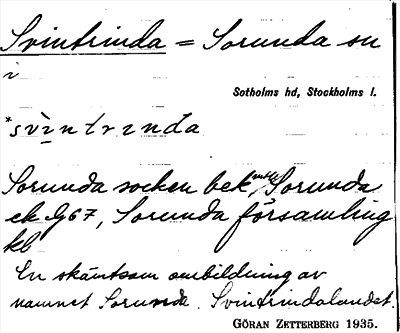 Svintrinda = Sorunda sn
i
Sotholms hd, Stockholms l.
*svìntrinda
Sorunda socken bek, Sorunda
ek G67, Sorunda församling
kb
En skämtsam ombildning av
namnet Sorunda. Svintrindalandet.
GÖRAN ZETTERBERG 1935.